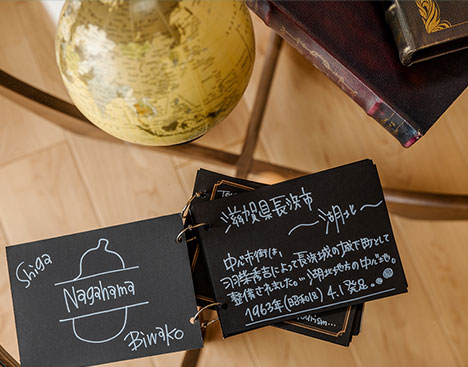 Shiga
Nagahama
Biwako
滋賀県長浜市
～湖北～
中心市街は、
羽柴秀吉によって長浜城の城下町として
整備されました。…湖北地方の中心地。
1963年(昭和18) 4.1 発足…
Tou
ourism...